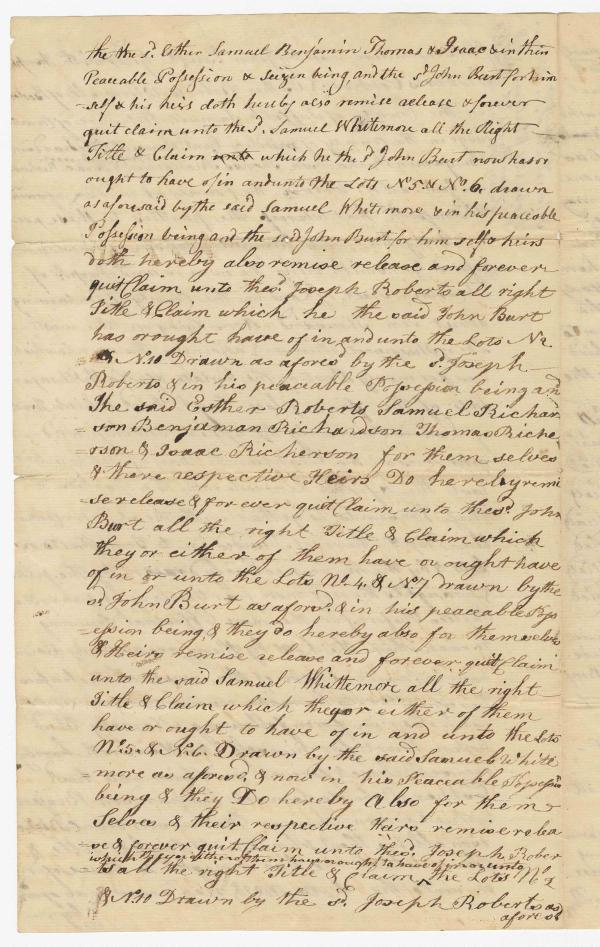 the the s.d Esther Samuel Benjamin Thomas & Isaac & in thier
Peaceable Possession & Seizen being and the s.d John Burt for him
=self & his heirs doth hereby also remise release & forever
quit claim unto the S.d Samuel Whittemore all the Right
Title & Claim unto which he the s.d John Burt now has or
ought to have of in and unto the Lots No 5 & No. 6. drawn
as aforesaid by the said Samuel Whittemore & in his peaceable
Possession being and the said John Burt for him self & heirs
doth hereby also remise release and forever
quit Claim unto the s.d Joseph Roberts all right
Title & Claim which he the said John Burt
has or ought have of in and unto the Lots No 2
& N.10 Drawn as afores.d by the s.d Joseph
Roberts & in his peaceable Possession being and
The said Esther Roberts Samuel Richar
=son Benjaman Richardson Thomas Riche
=rson & Isaac Richerson for them selves
& there respective Heirs Do hereby remi
=se release & for ever quit Claim unto the s.d John
Burt all the right Title & Claim which
they or either of them have or ought have
of in or unto the Lots No. 4. & No 7 drawn by the
s.d John Burt as afors.d & in his peaceable Poss
=ession being & they do hereby also for themselves
& Heirs remise release and forever quit Claim
unto the said Samuel Whittemore all the right
Title & Claim which they or either of them
have or ought to have of in and unto the Lots
No. 5. & No. 6. Drawn by the said Samuel White
=more as afores.d & now in his Peaceable Possession
being & they Do hereby Also for them
Selves & their respective Heirs remise relea
=se & forever quit Claim unto the s.d Joseph Rober
which they or either of them have or ought to have of in or unto
=ts all the right Title & Claim ^ the Lots No 2
& N.10 Drawn by the s.d Joseph Roberts as
afores.d